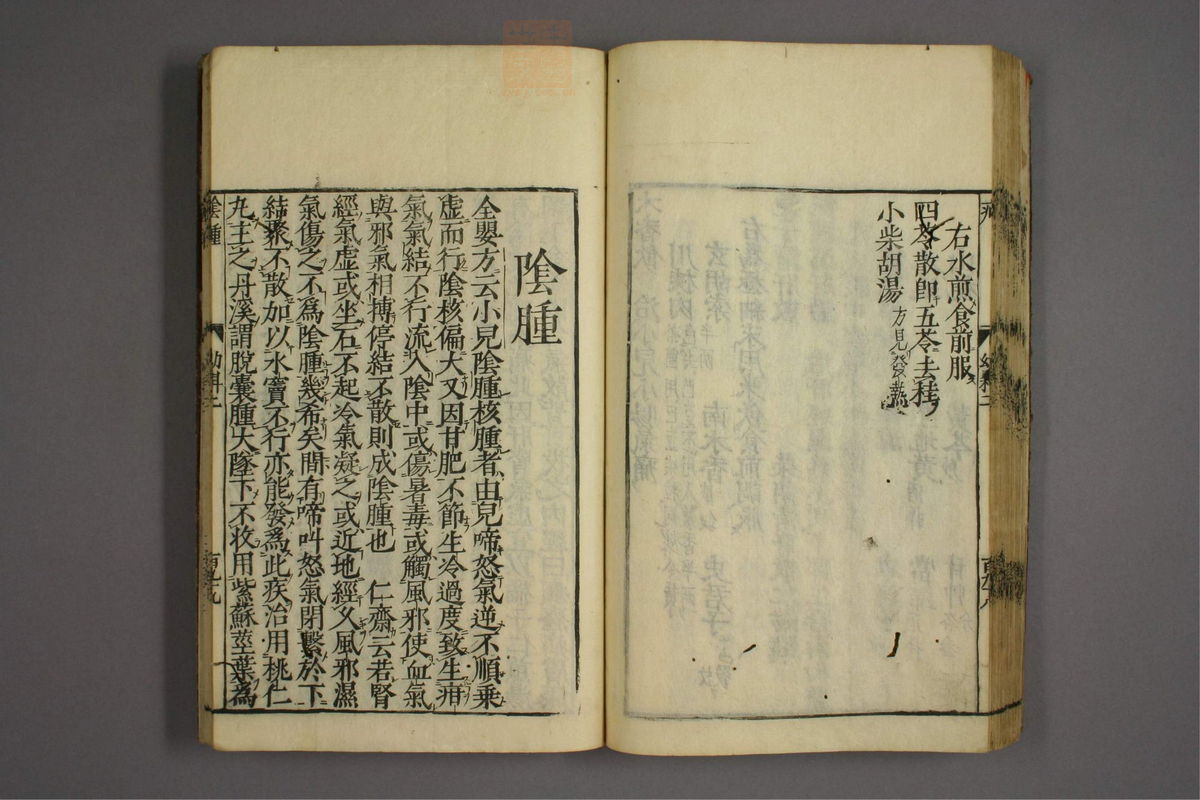 右水煎食前服
四苓散卽五苓去桂
小柴胡湯 方見發熱
幼科二
陰腫
全嬰方云小兒陰腫核腫者由兒啼怒氣逆不順乗
虛而行陰核偏大又因甘肥不節生冷過度致生疳
氣氣結不行流入陰中或傷暑毒或觸風邪使血氣
與邪氣相搏停結不散則成陰腫也 仁齋云若腎
經氣虛或坐石不起冷氣凝之或近地經久風邪濕
氣傷之不爲陰腫幾希矣間有啼叫怒氣閉繫於下
結聚不散加以水竇不行亦能發爲此疾治用桃仁
丸主之丹溪謂脫囊腫大墜下不收用紫蘇莖葉爲
陰腫
幼科二
百九十九